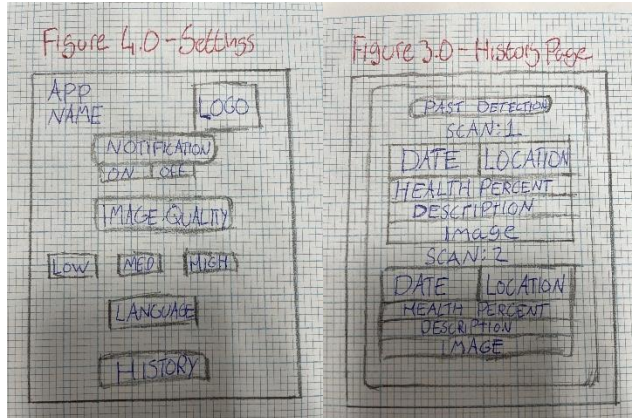 Figure 4.0 - Settings
APP
NAME
LOGO
NOTIFICATION
ON OFF
IMAGE QUALITY
LOW MED HIGH
LANGUAGE
HISTORY
Figure 3.0 - History Page
PAST DETECTION
SCAN: 1
DATE LOCATION
HEALTH PERCENT
DESCRIPTION
Image
SCAN: 2
DATE LOCATION
HEALTH PERCENT
DESCRIPTION
IMAGE